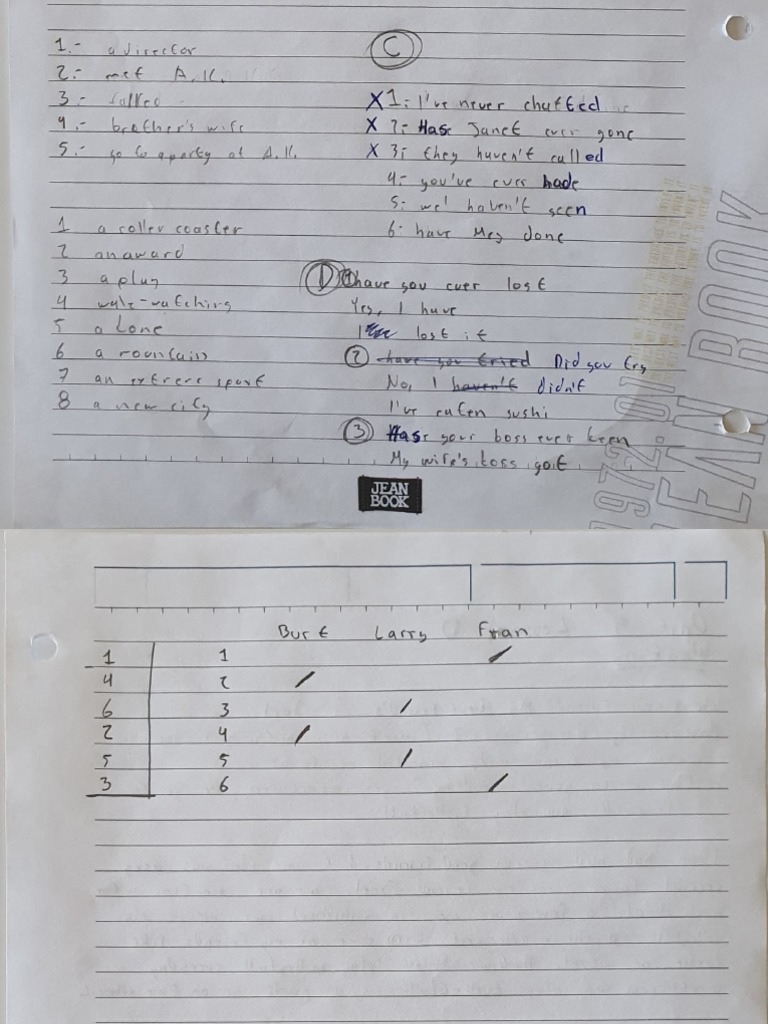 1.- a director
2.- met A.K.
3.- talked
4.- brother's wife
5.- go to aparty at A.K.
1 a roller coaster
2 an award
3 a play
4 wale-watching
5 a bone
6 a mountain
7 an extreme sport
8 a new city
C
X 1: I've never chatted
X 2- Has Janet ever gone
X 3: they haven't called
4- you've ever made
5: we' haven't seen
6- have Meg done
D 1 have you ever lost
Yes, I have
I lost it
2 have you tried Did you try
No, I haven't didn't
I've eaten sushi
3 Has your boss ever been
My wife's boss got
JEAN
BOOK
1972.01
JEAN BOOK
Burt Larry Fran
1 1 /
4 2 /
6 3 /
2 4 /
5 5 /
3 6 /